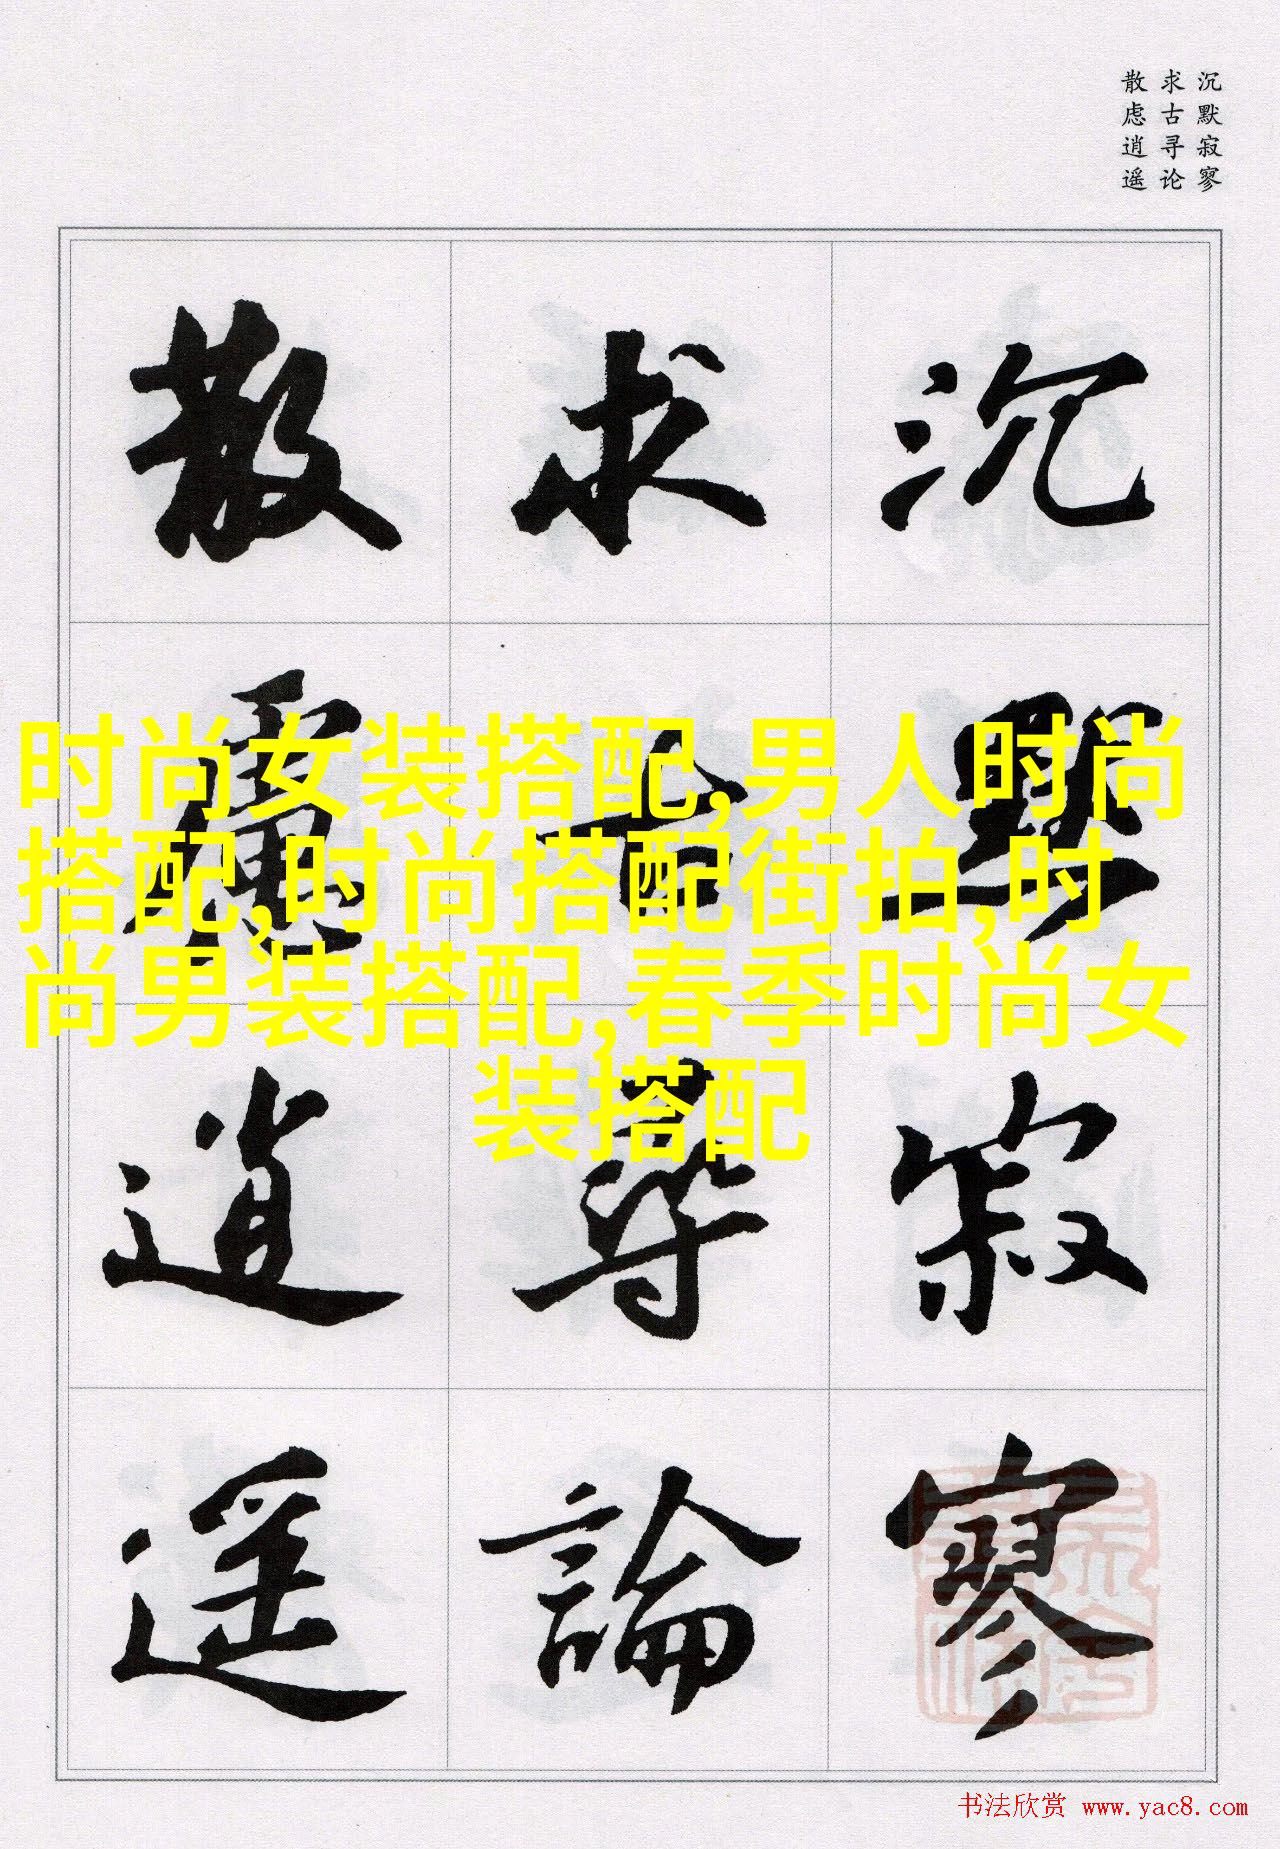 沉默寂寥
求古寻论
散虑逍遥
沉默寂寥
求古尋論
散慮逍遥
时尚女装搭配,男人时尚
搭配,时尚搭配街拍,时
尚男装搭配,春季时尚女
装搭配
书法欣赏 www.yac8.com